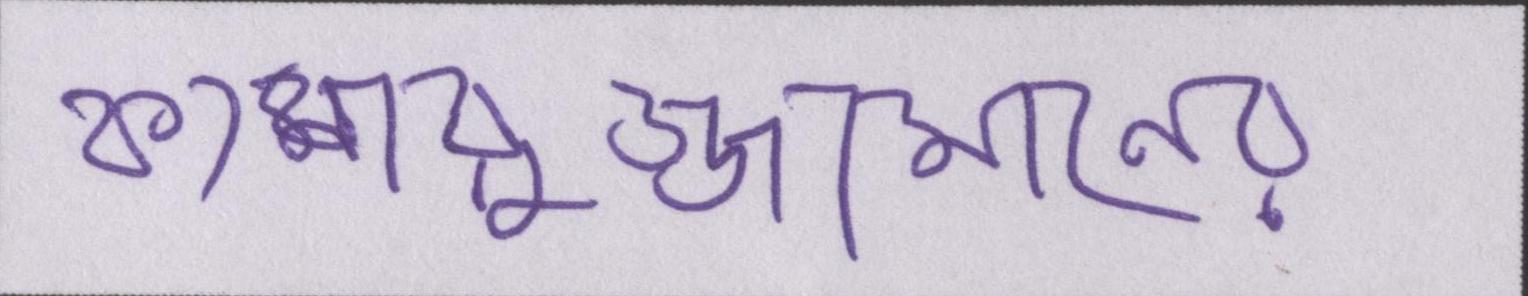 কামারুজ্জামানের